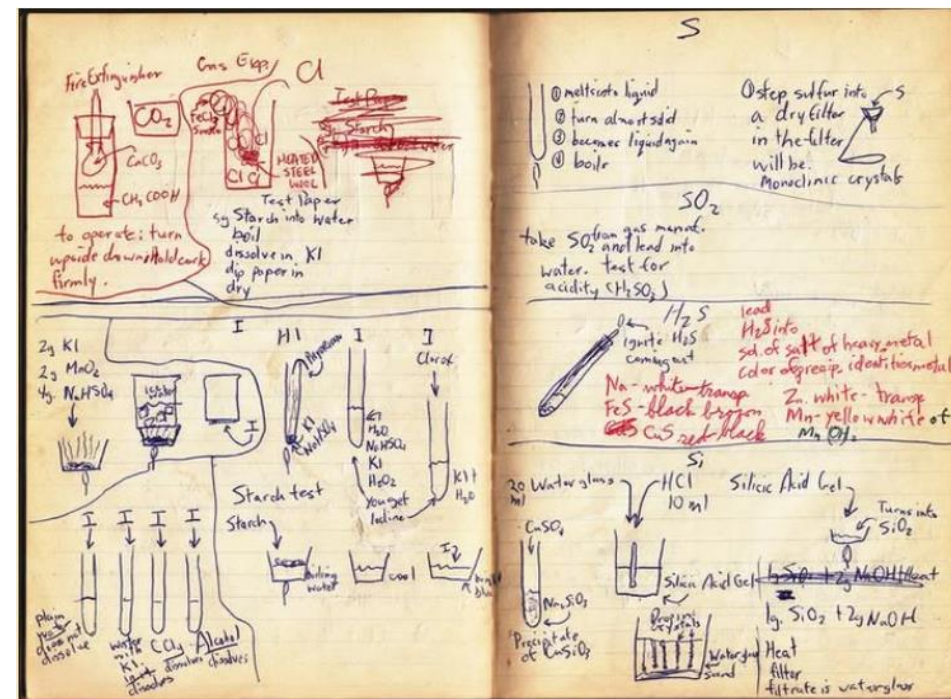 Fire Extinguisher
CO2
CaCO3
CH3COOH
to operate: turn
upside down; Hold cork
firmly.
Gas Exp.
Cl
FeCl3
Smoke
Cl
Cl
HEATED
STEEL
WOOL
Test Paper
Starch
Test Paper
5g Starch into water
boil
dissolve in KI
dip paper in
dry
I
2g KI
2g MnO2
4g NaHSO4
Water
I
HI
KI
NaHSO4
I
NaHSO4
KI
H2O2
You get
Iodine
I
Clorox
KI +
H2O
Starch test
Starch
boiling
water
cool
I2
I
I
I
I
plain
does not
dissolve
water
with
KI
dissolves
CCl4
dissolves
Alcohol
dissolves
S
① melts into liquid
② turn almost solid
③ becomes liquid again
④ boils
① step sulfur into
a dry filter
in the filter
will be.
Monoclinic crystals
S
SO2
take SO2 from gas
and lead into
water. test for
acidity (H2SO3)
H2S
ignite H2S
coming out
lead
H2S into
sol. of salt of heavy metal
color of precip. identities metal
Na - white - transp
FeS - black brown
CuS red-black
Zn. white - transp
Mn - yellow white of
Mn OH2
Si
20
ml
Waterglass
HCl
10 ml
Silicic Acid Gel
Turns into
SiO2
CuSO4
Na2SiO3
Precipitate
of CuSiO3
Silicic Acid Gel
Drop in
crystals
Waterglass
sand
1g SiO2 + 2g NaOH Heat
1g. SiO2 + 2g NaOH
Heat
filter
filtrate is waterglass